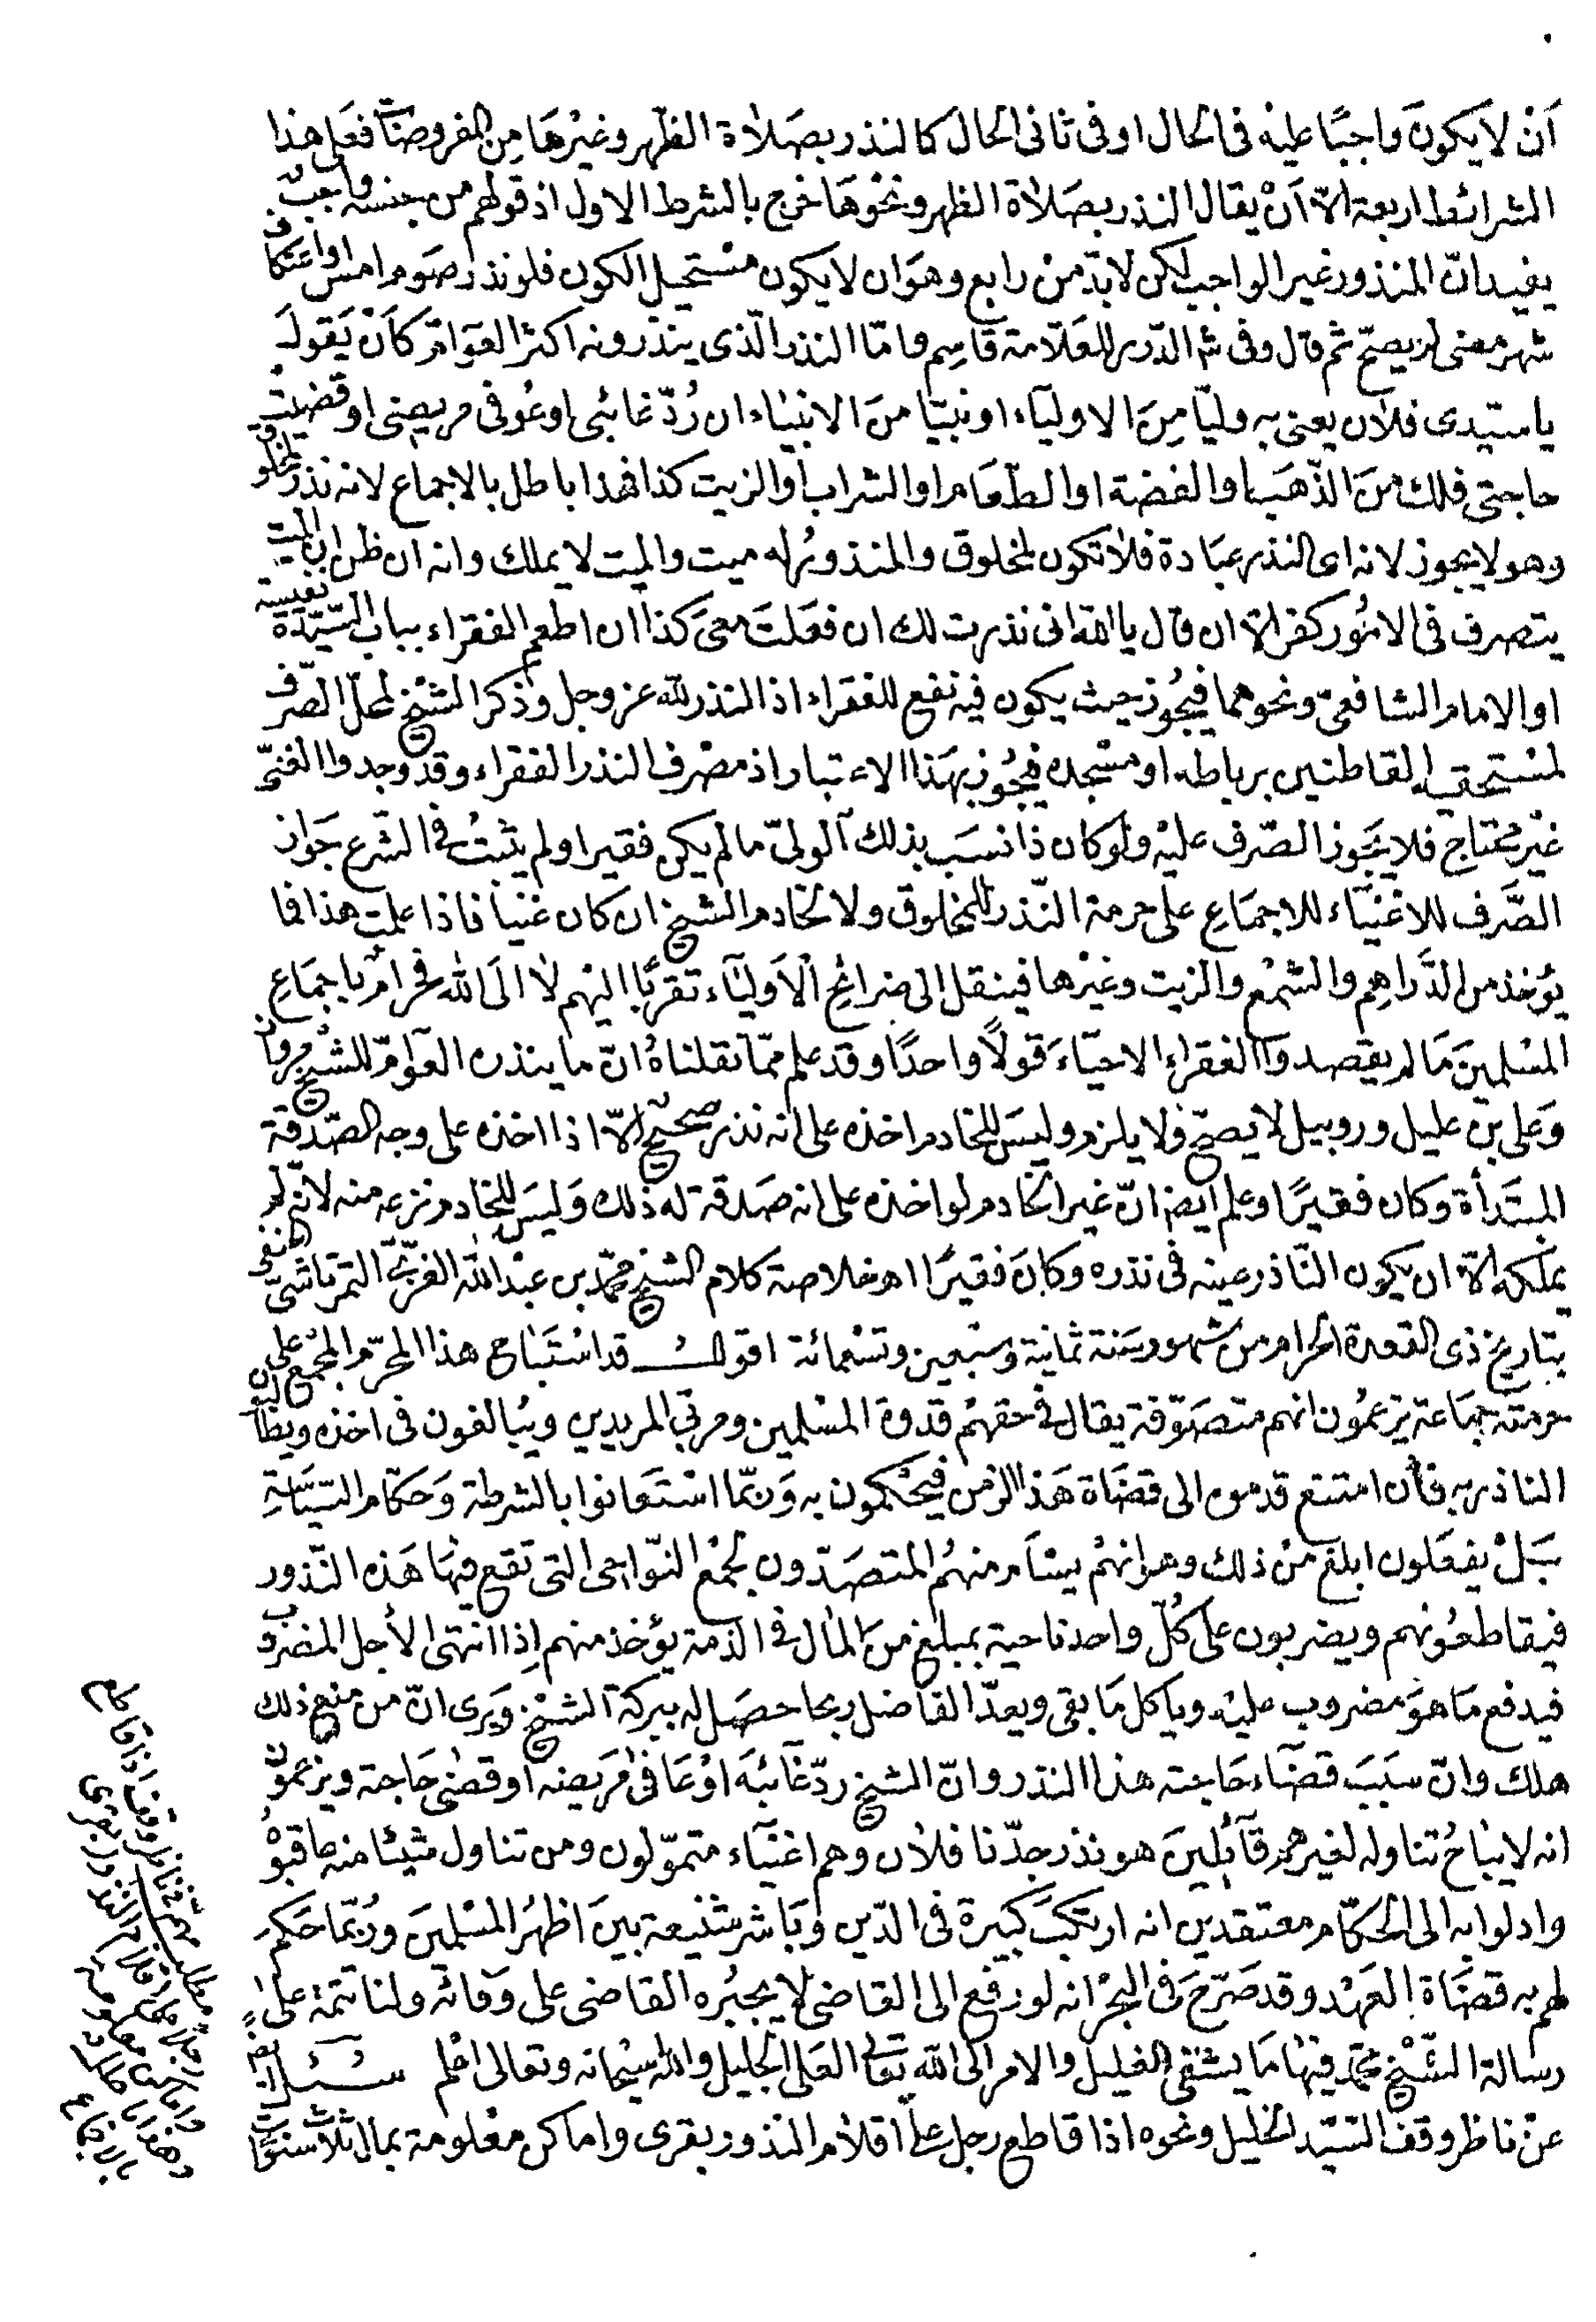 اَنْ لا يكونَ واجبًا عليْه فى الحال او فى ثانى الحال كالنذر بصَلاة الظهر وغيْرهَا مِن المفروضَات فعَلى هذا
الشرائط اربعة الاّ اَنْ يقال النذر بصَلاة الظهر ونحْوهَا خرج بالشرط الاول اذ قولهم من جنسه واجبٌ
يفيد انّ المنذور غير الواجب لكن لا بدّ منْ رابع وهوَ ان لا يكون مسْتحيل الكون فلو نذر صَوم امس او اعتكاف
شهر مضى لم يصحّ ثم قال وفى شر الدّرر للعَلاّمة قاسِم وامّا النذر الّذى ينذرونه اكثر العوَامّ كاَنْ يَقولَ
يا سيّدى فلان يعنى به وليّا مِنَ الاولياء او نبيّا منَ الانبيَاء ان رُدّ غائبى او عُوفى مريضى او قضيت
حاجتى فلك منَ الذّهَب او الفضة او الطّعَام او الشراب او الزيت كذا فهذا باطل بالاجماع لانه نذر لمخلوق
وهو لا يجوز لانه اى النذر عبَادة فلا تكون لمخلوق والمنذورُ له ميت والميت لا يملك وانه ان ظن ان الميت
يتصرف فى الامُور كفر الاّ ان قال يا الله انى نذرت لك ان فعَلتَ معىَ كذا ان اطعم الفقراء بباب السّيّدة نفيسة
او الامام الشافعىّ ونحوهما فيَجُوز حيث يكون فيْه نفع للفقراء اذ النذر لله عز وجل وذكر الشيْخ لمحلّ الصّرْف
لمسْتحقيه القاطنين برباطه او مسْجده فيجُوز بهَذا الاعتبار اذ مصْرف النذر الفقراء وقدْ وجدوا الغنىّ
غيْر محْتاج فلا يَجُوز الصّرف عليْه ولو كان ذا نسَب بذلك الولىّ ما لم يكن فقيرا ولم يثبتْ فى الشرع جَواز
الصَّرف للاغنيَاء للاجمَاع على حرمة النّذر للمخلوق ولا لخادم الشيخ ان كان غنيا فاذا علمت هذا فما
يؤخذ من الدَّراهِم والشمْع والزيت وغيْرها فينقل الى ضرائحِ الاَوليَاء تقربًا اليْهم لا الىَ الله فحرامٌ باجمَاعِ
المسْلمينَ مَا لم يقصدوا الفقراء الاحيَاءَ قولاً واحدًا وقد علم ممّا نقلناهُ انّ ما ينذره العوَامّ للشيْخ مروان
وَعلى بن عليل وروبيل لا يَصحّ ولا يلزم وليسَ للخادم اخذه على انه نذر صحيْح الاّ اذا اخذه على وجه الصّدقة
المبتَدأة وكان فقيرًا وعلم ايضا انّ غير الخادم لو اخذه على انه صَدقة له ذلك وَليسَ للخادم نزعه منه لانّه لم
يملكه الاّ ان يكون النّاذر عينه فى نذره وكانَ فقيرًا اهـ خلاصة كلام الشيخ محمّد بن عبْد الله الغزّىّ التمرتاشىّ الحنفى
بتاريخ ذى القعدة الحرام من شهور سَنة ثمانية وسَبْعين وتسْعمائة اقولُ قد اسْتَبَاح هذا المحرّم المجْمَع على
حرمته جمَاعة يزعمُون انهم متصَوّفة يقال فى حقهمْ قدوة المسْلمين ومربّى المريدين ويبَالغون فى اخذه ويطالبُون
الناذر به فاَن امتنع قدموه الى قضَاة هَذا الزمن فيَحْكمون به وَربّما اسْتَعانوا بالشرطة وَحكّام السّيَاسَةِ
بَلْ يفعَلون ابلغ منْ ذلك وهو انهمْ يسْتأمر منهُم المتصَدّون لجمْع النّواحِى التى تقع فيْهَا هَذه النّذور
فيقاطعُونهم ويضربون على كُلّ واحد ناحية بمبلغ منَ المال فى الذمة يؤخذ منهم اِذا انتهى الأجل المضروب
فيدفع مَا هوَ مضروب عليْه وياكل مَا بقى ويعدّ الفاضل ربحا حصَل له ببركة الشيْخ وَيرى انّ من منع ذلك
هلك وانّ سبَبَ قضَاء حَاجته هذا النذر وانّ الشيخ ردّ غَائبَه اوْ عَافى مَريضه او قضى حَاجة ويزعمُونَ
انه لا يبَاحُ تناوله لغيرهمْ قآئلِينَ هو نذر جدّنا فلان وهم اغنيَاء متموّلون ومن تناول شيْئا منه عاقبوْه
وادلوا به الى الحكّام معتقدين انه ارتكبَ كبيرة فى الدّين وَبَاشر شنيعة بينَ اظهُر المسْلمينَ ورُبّما حَكمَ
لهم به قضَاة العَهْد وقد صَرّحَ فى البحْر انه لو رفع الى القاضى لا يجبُره القاضى على وَفائه ولنا تتمّة على
رسالة الشّيْخ محمّد فيْهَا مَا يشفى الغليل والامر الى الله تعَالى العَلى الجليل والله سبْحانه وتعالى اعْلم سُئلَ
عنْ ناظر وقف السّيّد الخليل ونحوه اذا قاطع رجل على اقلام النذور بقرى واماكن معْلومة بمال ثلاث سنوَات